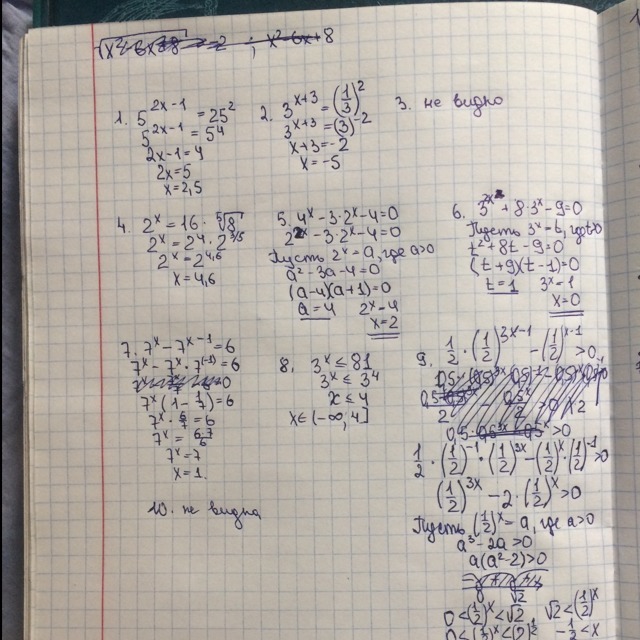 √x²-6x+8 = 2 ; x²-6x+8
1. 5^(2x-1) = 25²
5^(2x-1) = 5⁴
2x-1=4
2x=5
x=2,5
2. 3^(x+3) = (1/3)²
3^(x+3) = (3)^(-2)
x+3=-2
x=-5
3. не видно
4. 2^x = 16 · ⁵√8
2^x = 2⁴ · 2^(3/5)
2^x = 2^(4,6)
x = 4,6
5. 4^x - 3·2^x - 4=0
2^(2x) - 3·2^x - 4=0
Пусть 2^x = a, где a>0
a² - 3a - 4=0
(a-4)(a+1)=0
a=4 2^x=4
x=2
6. 3^(2x) + 8·3^x - 9=0
Пусть 3^x = t, где t>0
t² + 8t - 9=0
(t+9)(t-1)=0
t=1 3^x=1
x=0
7. 7^x - 7^(x-1) = 6
7^x - 7^x · 7^(-1) = 6
7^x (1 - 1/7) = 6
7^x · 6/7 = 6
7^x = 6·7/6
7^x = 7
x = 1
8. 3^x ≤ 81
3^x ≤ 3⁴
x ≤ 4
x∈(-∞,4]
9. 1/2 · (1/2)^(3x-1) - (1/2)^(x-1) >0
1/2 · (1/2)^(-1) · (1/2)^(3x) - (1/2)^x · (1/2)^(-1) >0
(1/2)^(3x) - 2 · (1/2)^x >0
Пусть (1/2)^x = a, где a>0
a³ - 2a >0
a(a²-2)>0
0 √2
0 < (1/2)^x < √2 √2 < (1/2)^x
0 < (1/2)^x < (2)^(1/2) -1/2 < x
10. не видно